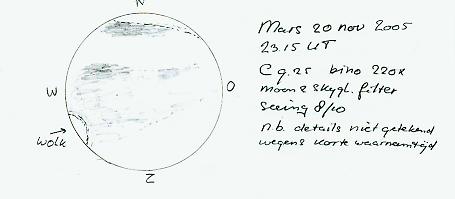 N
Mars 20 nov 2005
23 15 UT
C 9.25 bino 220x
moon & skygl. filter
seeing 8/10
n.b. details niet getekend
wegens korte waarneemtijd
W
O
wolk
Z